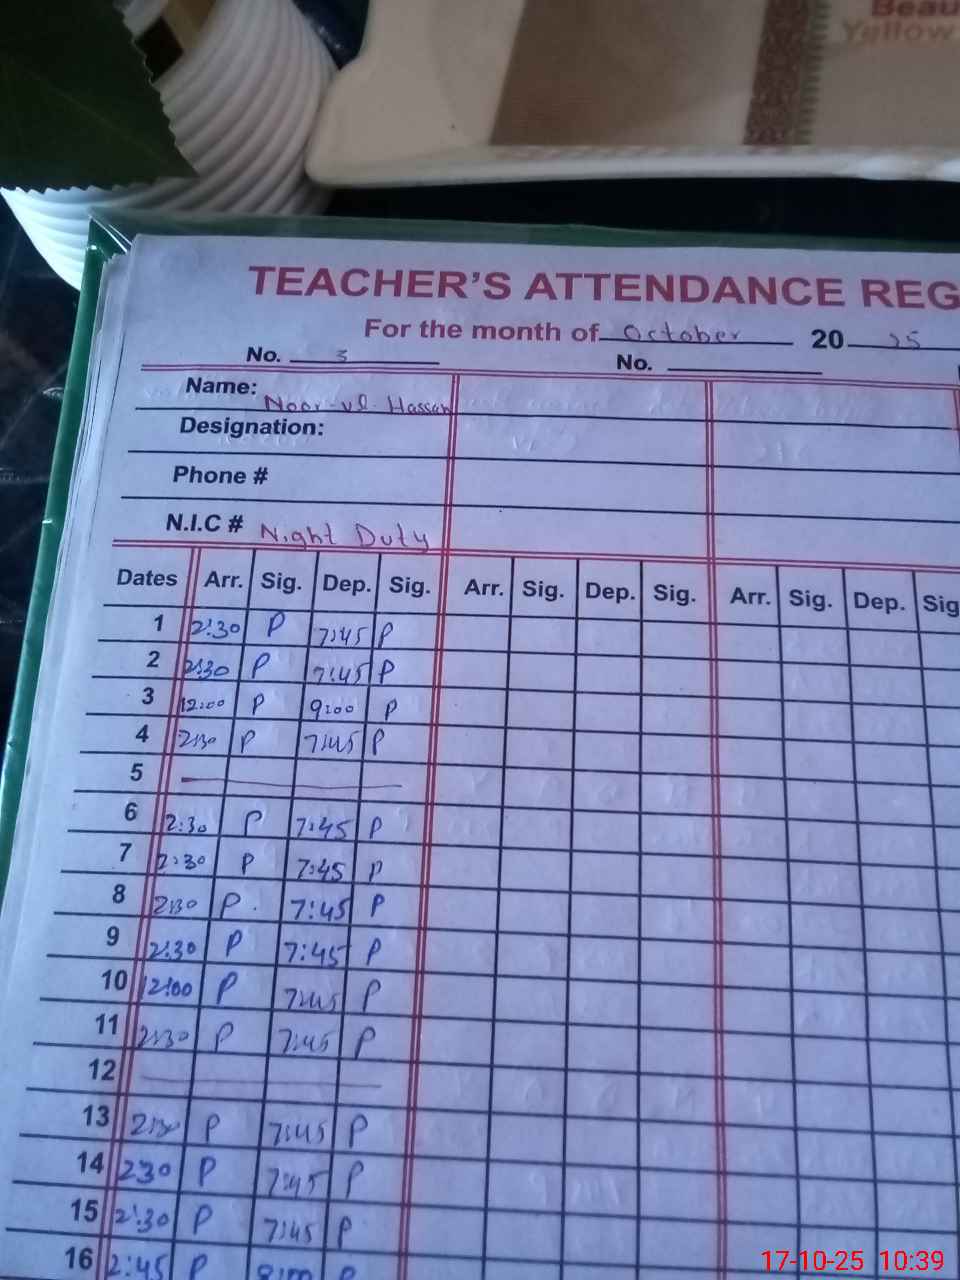 Beau
Yellow
TEACHER'S ATTENDANCE REG
For the month of October 20 25
No. 3 No.
Name: Noor-ul-Hassan
Designation:
Phone #
N.I.C # Night Duty
Dates Arr. Sig. Dep. Sig. Arr. Sig. Dep. Sig. Arr. Sig. Dep. Sig
1 2:30 P 7:45 P
2 2:30 P 7:45 P
3 12:00 P 9:00 P
4 2:30 P 7:45 P
5
6 2:30 P 7:45 P
7 2:30 P 7:45 P
8 2:30 P. 7:45 P
9 2:30 P 7:45 P
10 12:00 P 7:45 P
11 2:30 P 7:45 P
12
13 2:30 P 7:45 P
14 2:30 P 7:45 P
15 2:30 P 7:45 P
16 2:45 P 8:00 P
17-10-25 10:39